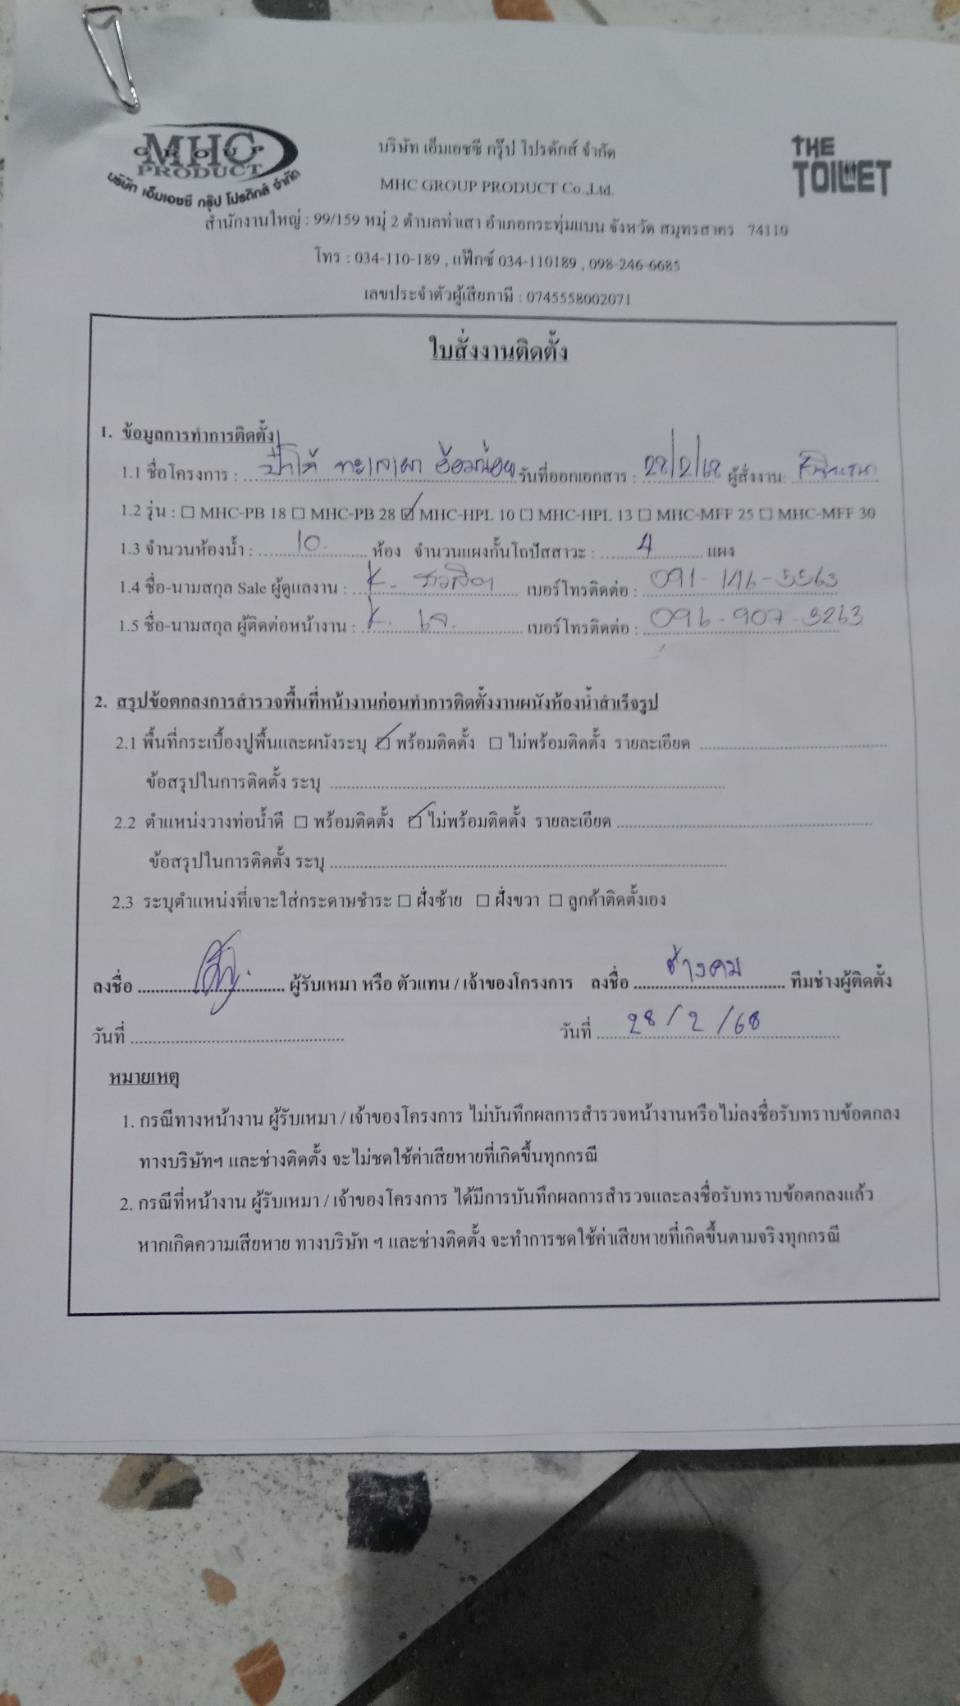 MHC
GROUP
PRODUCT
บริษัท เอ็มเอชซี กรุ๊ป โปรดักส์ จำกัด
THE
TOILET
บริษัท เอ็มเอชซี กรุ๊ป โปรดักส์ จำกัด
MHC GROUP PRODUCT Co.,Ltd.
สำนักงานใหญ่ : 99/159 หมู่ 2 ตำบลท่าเสา อำเภอกระทุ่มแบน จังหวัด สมุทรสาคร 74110
โทร : 034-110-189 , แฟ็กซ์ 034-110189 , 098-246-6685
เลขประจำตัวผู้เสียภาษี : 0745558002071
ใบสั่งงานติดตั้ง
1. ข้อมูลการทำการติดตั้ง
1.1 ชื่อโครงการ : ป้าใต้ ทะเลเผา อ้อมน้อย วันที่ออกเอกสาร : 28/2/68 ผู้สั่งงาน:
1.2 รุ่น : ☐ MHC-PB 18 ☐ MHC-PB 28 ☑ MHC-HPL 10 ☐ MHC-HPL 13 ☐ MHC-MFF 25 ☐ MHC-MFF 30
1.3 จำนวนห้องน้ำ : 10 ห้อง จำนวนแผงกั้นโถปัสสาวะ : 4 แผง
1.4 ชื่อ-นามสกุล Sale ผู้ดูแลงาน : K. เบอร์โทรติดต่อ : 091-146-5563
1.5 ชื่อ-นามสกุล ผู้ติดต่อหน้างาน : K. เบอร์โทรติดต่อ : 096-907-3263
2. สรุปข้อตกลงการสำรวจพื้นที่หน้างานก่อนทำการติดตั้งงานผนังห้องน้ำสำเร็จรูป
2.1 พื้นที่กระเบื้องปูพื้นและผนังระบุ ☑ พร้อมติดตั้ง ☐ ไม่พร้อมติดตั้ง รายละเอียด
ข้อสรุปในการติดตั้ง ระบุ
2.2 ตำแหน่งวางท่อน้ำดี ☐ พร้อมติดตั้ง ☑ ไม่พร้อมติดตั้ง รายละเอียด
ข้อสรุปในการติดตั้ง ระบุ
2.3 ระบุตำแหน่งที่เจาะใส่กระดาษชำระ ☐ ฝั่งซ้าย ☐ ฝั่งขวา ☐ ลูกค้าติดตั้งเอง
ลงชื่อ ผู้รับเหมา หรือ ตัวแทน / เจ้าของโครงการ ลงชื่อ ช่างคม ทีมช่างผู้ติดตั้ง
วันที่ วันที่ 28/2/68
หมายเหตุ
1. กรณีทางหน้างาน ผู้รับเหมา / เจ้าของโครงการ ไม่บันทึกผลการสำรวจหน้างานหรือไม่ลงชื่อรับทราบข้อตกลง
ทางบริษัทฯ และช่างติดตั้ง จะไม่ชดใช้ค่าเสียหายที่เกิดขึ้นทุกกรณี
2. กรณีที่หน้างาน ผู้รับเหมา / เจ้าของโครงการ ได้มีการบันทึกผลการสำรวจและลงชื่อรับทราบข้อตกลงแล้ว
หากเกิดความเสียหาย ทางบริษัท ฯ และช่างติดตั้ง จะทำการชดใช้ค่าเสียหายที่เกิดขึ้นตามจริงทุกกรณี